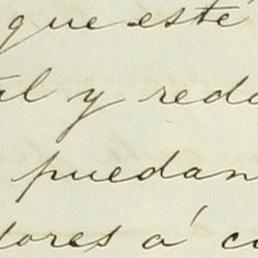 que esté
al y reda
puedan
dores á co